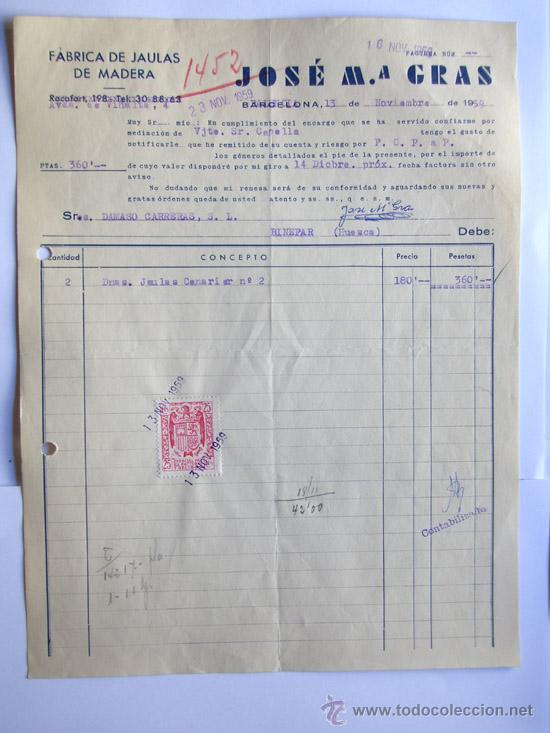 FÁBRICA DE JAULAS
DE MADERA
1452
16 NOV. 1959
FACTURA NÚM.
JOSÉ M.ª GRAS
Rocafort, 198 - Tel. 30 88 63
23 NOV. 1959
BARCELONA, 13 de Noviembre de 1959
Muy Sr. mío: En cumplimiento del encargo que se ha servido confiarme por
mediación de Vjte. Sr. Capella tengo el gusto de
notificarle que he remitido de su cuenta y riesgo por F. C. P. a P.
los géneros detallados el pie de la presente, por el importe de
PTAS. 360'-- de cuyo valor dispondré por mi giro a 14 Dicbre. próx. fecha factura sin otro
aviso.
No dudando que mi remesa será de su conformidad y aguardando sus nuevas y
gratas órdenes queda de usted atento y ss. ss., q. e. s. m.
José Mª Gras
Sres. DAMASO CARRERAS, S. L.
BINEFAR (Huesca) Debe:
Cantidad CONCEPTO Precio Pesetas
2 Dnas. Jaulas Canarier nº 2 180'-- 360'--
13 NOV. 1959
25 25
13 NOV. 1959
18/11
42'00
Contabilizado
todocoleccion.net